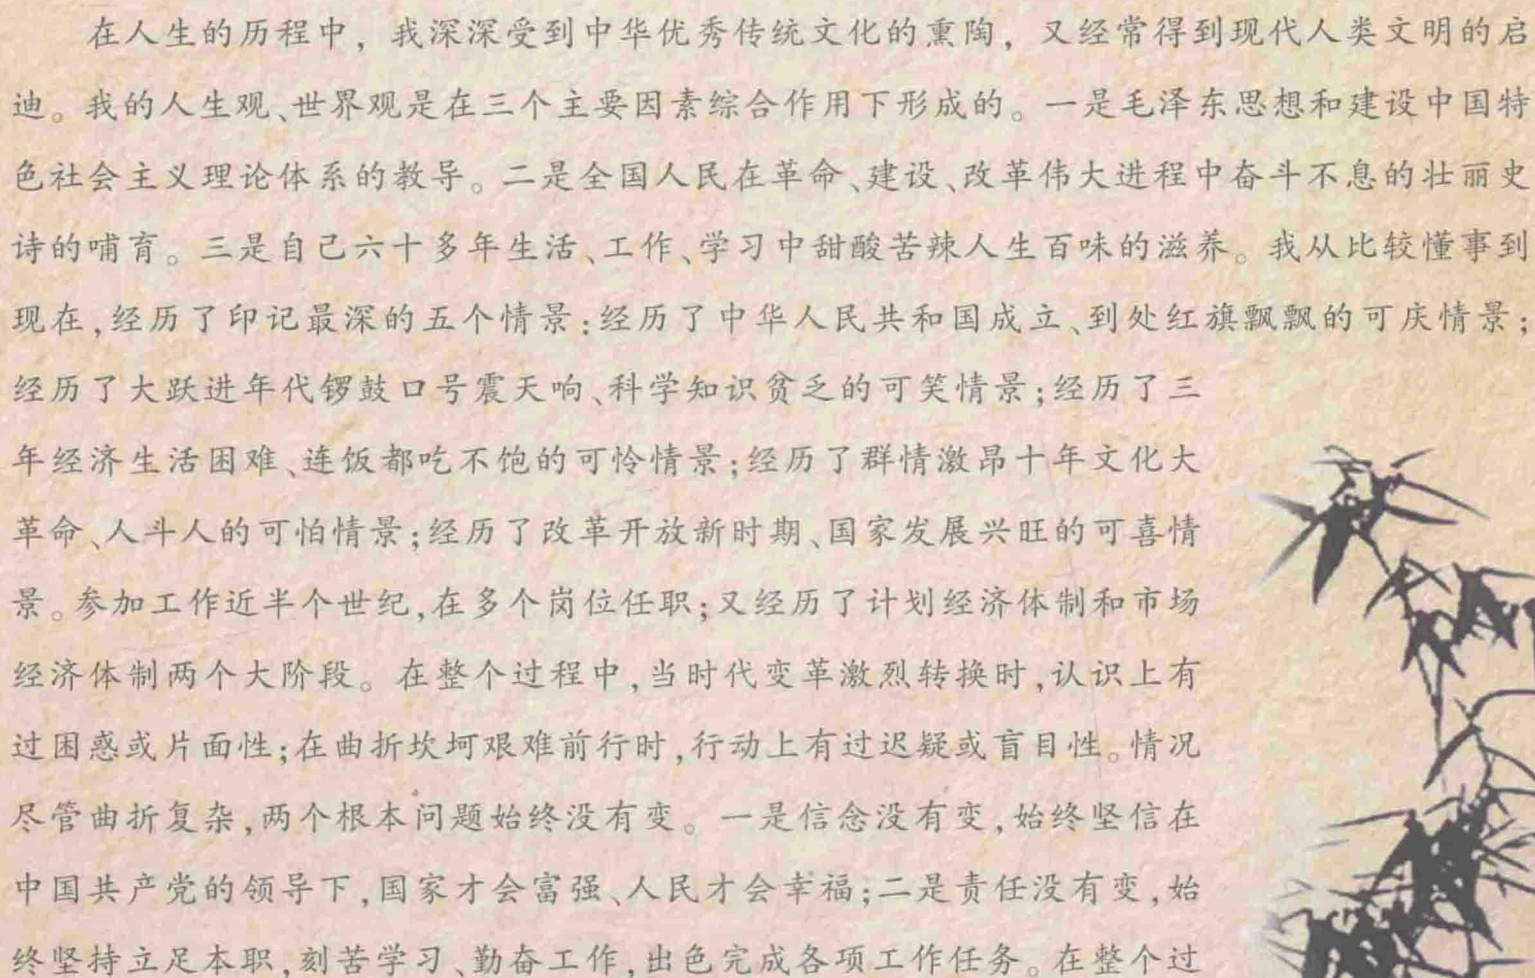 在人生的历程中，我深深受到中华优秀传统文化的熏陶，又经常得到现代人类文明的启
迪。我的人生观、世界观是在三个主要因素综合作用下形成的。一是毛泽东思想和建设中国特
色社会主义理论体系的教导。二是全国人民在革命、建设、改革伟大进程中奋斗不息的壮丽史
诗的哺育。三是自己六十多年生活、工作、学习中甜酸苦辣人生百味的滋养。我从比较懂事到
现在，经历了印记最深的五个情景：经历了中华人民共和国成立、到处红旗飘飘的可庆情景；
经历了大跃进年代锣鼓口号震天响、科学知识贫乏的可笑情景；经历了三
年经济生活困难、连饭都吃不饱的可怜情景；经历了群情激昂十年文化大
革命、人斗人的可怕情景；经历了改革开放新时期、国家发展兴旺的可喜情
景。参加工作近半个世纪，在多个岗位任职；又经历了计划经济体制和市场
经济体制两个大阶段。在整个过程中，当时代变革激烈转换时，认识上有
过困惑或片面性；在曲折坎坷艰难前行时，行动上有过迟疑或盲目性。情况
尽管曲折复杂，两个根本问题始终没有变。一是信念没有变，始终坚信在
中国共产党的领导下，国家才会富强、人民才会幸福；二是责任没有变，始
终坚持立足本职，刻苦学习、勤奋工作，出色完成各项工作任务。在整个过